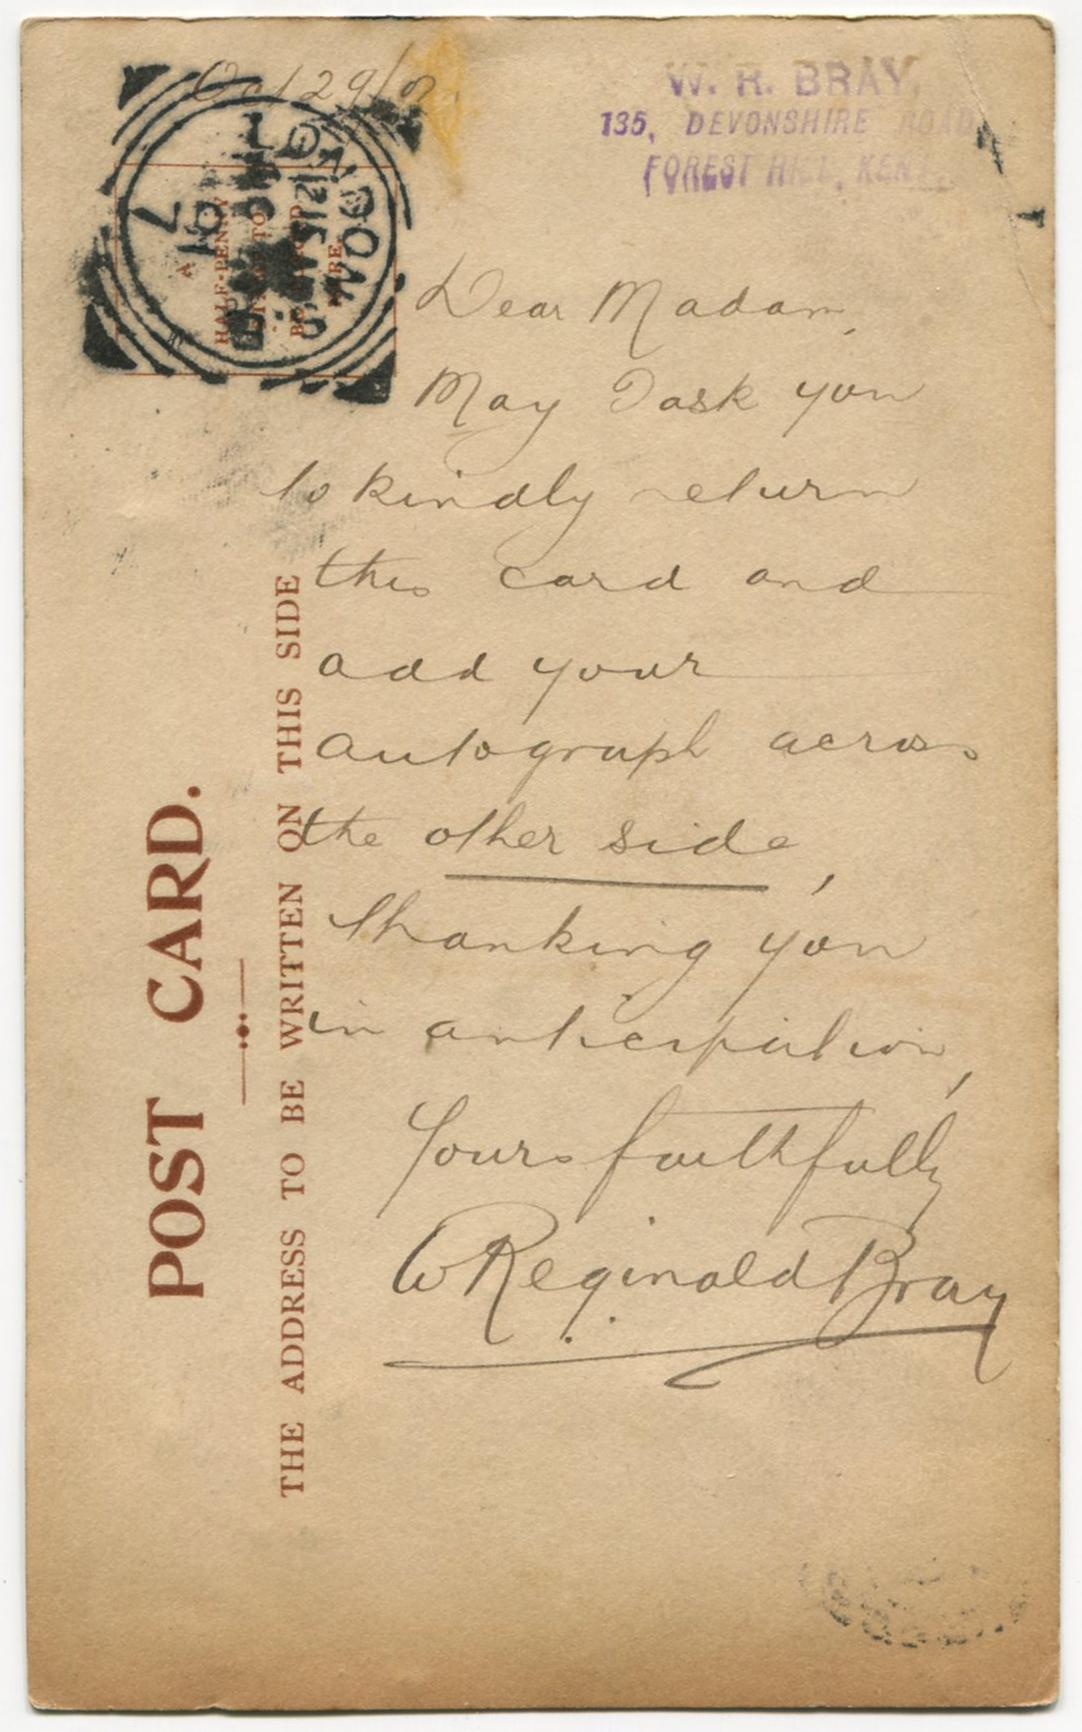 Oct 29/
W. R. BRAY,
135, DEVONSHIRE ROAD
FOREST HILL, KENT.
LONDON
12.15 AM
OC 7
01
A
HALF-PENNY
TO
HERE.
Dear Madam,
May I ask you
to kindly return
this card and
add your
autograph across
the other side,
thanking you
in anticipation,
Yours faithfully
W Reginald Bray
POST CARD.
THE ADDRESS TO BE WRITTEN ON THIS SIDE